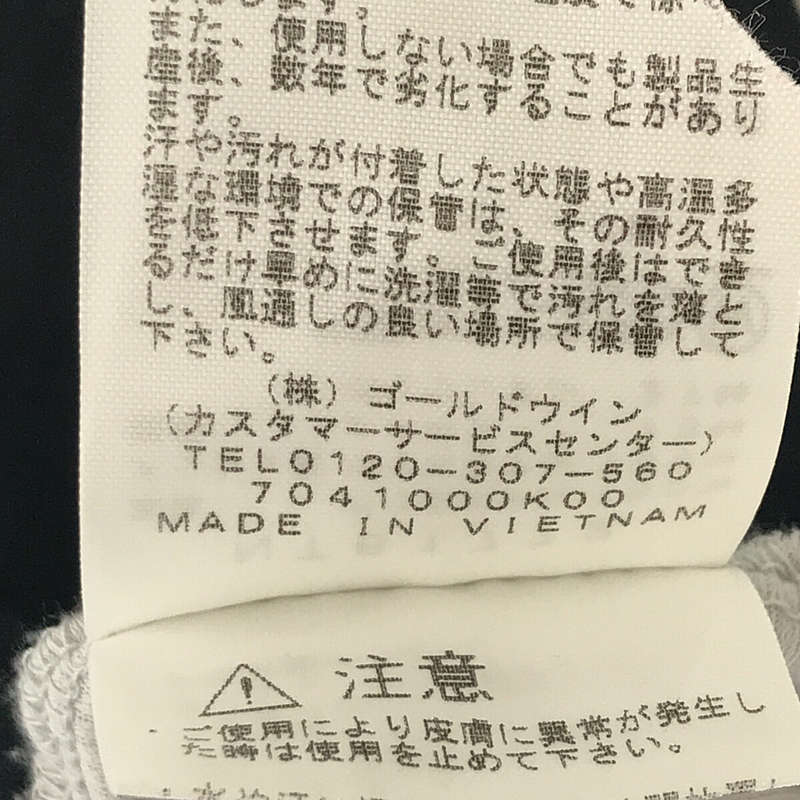 また、使用しない場合でも製品生
産後、数年で劣化することがあり
ます。
汗や汚れが付着した状態や高温多
湿な環境での保管は、その耐久性
を低下させます。ご使用後はでき
るだけ早めに洗濯等で汚れを落と
し、風通しの良い場所で保管して
下さい。
(株) ゴールドウイン
(カスタマーサービスセンター)
TEL0120-307-560
7041000K00
MADE IN VIETNAM
注意
ご使用により皮膚に異常が発生し
た時は使用を止めて下さい。